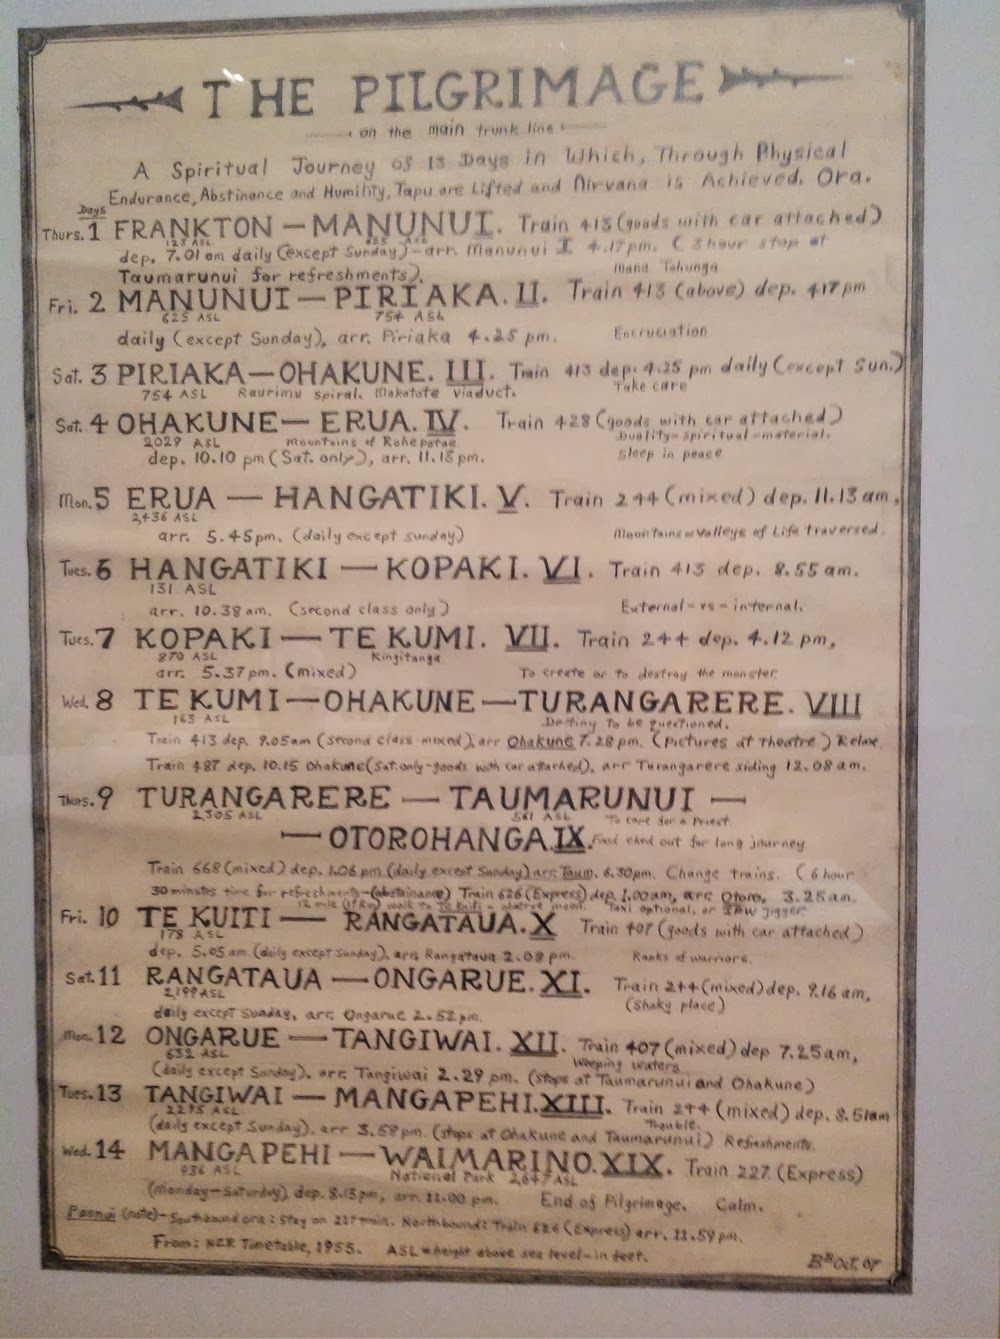 THE PILGRIMAGE
on the main trunk line
A Spiritual Journey of 13 Days in Which, Through Physical
Endurance, Abstinance and Humility, Tapu are Lifted and Nirvana is Achieved. Ora.
Days
Thurs. 1 FRANKTON — MANUNUI. Train 413 (goods with car attached)
123 ASL 625 ASL
dep. 7.01 am daily (except Sunday) - arr. Manunui I 4.17pm. ( 3 hour stop at
Taumarunui for refreshments). Mana Tohunga
Fri. 2 MANUNUI — PIRIAKA. II. Train 413 (above) dep. 417 pm
625 ASL 754 ASL
daily (except Sunday), arr. Piriaka 4.25 pm. Encruciation
Sat. 3 PIRIAKA — OHAKUNE. III. Train 413 dep. 4.25 pm daily (except Sun.)
754 ASL Raurimu spiral. Makatote viaduct. Take care
Sat. 4 OHAKUNE — ERUA. IV. Train 428 (goods with car attached)
2029 ASL mountains of Rohepotae Duality-spiritual-material.
dep. 10.10 pm (Sat. only), arr. 11.15 pm. Sleep in peace
Mon. 5 ERUA — HANGATIKI. V. Train 244 (mixed) dep. 11.13 am,
2,436 ASL
arr. 5.45pm. (daily except sunday) Mountains or Valleys of Life traversed.
Tues. 6 HANGATIKI — KOPAKI. VI. Train 413 dep. 8.55 am.
131 ASL
arr. 10.38 am. (second class only) External-vs-internal.
Tues. 7 KOPAKI — TE KUMI. VII. Train 244 dep. 4.12 pm,
870 ASL Kingitanga
arr. 5.37 pm. (mixed) To create or to destroy the monster
Wed. 8 TE KUMI — OHAKUNE — TURANGARERE. VIII
163 ASL Destiny to be questioned.
Train 413 dep. 9.05am (second class-mixed), arr Ohakune 7.28 pm. (pictures at theatre) Relax.
Train 487 dep. 10.15 Ohakune (Sat. only-goods with car attached), arr Turangarere siding 12.08 am.
Thurs. 9 TURANGARERE — TAUMARUNUI —
2,305 ASL 561 ASL To care for a Priest
— OTOROHANGA. IX. Food eked out for long journey
Train 668 (mixed) dep. 1.06 pm (daily except Sunday) arr. Taum. 6.30pm. Change trains. ( 6 hour
30 minutes time for refreshments-(abstainance) Train 626 (Express) dep. 1.00am, arr. Otoro. 3.25 am.
12 mile walk to Te Kuiti - observe moon. Taxi optional, or jigger
Fri. 10 TE KUITI — RANGATAUA. X Train 407 (goods with car attached)
178 ASL
dep. 5.05 am. (daily except Sunday), arr. Rangataua 2.08 pm. Ranks of warriors.
Sat. 11 RANGATAUA — ONGARUE. XI. Train 244 (mixed) dep. 9.16 am,
2,199 ASL (Shaky place)
daily except Sunday, arr. Ongarue 2.52 pm.
Mon. 12 ONGARUE — TANGIWAI. XII. Train 407 (mixed) dep 7.25am,
632 ASL Weeping waters
(daily except Sunday). arr. Tangiwai 2.29 pm. (stops at Taumarunui and Ohakune)
Tues. 13 TANGIWAI — MANGAPEHI. XIII. Train 244 (mixed) dep. 8.51am
2275 ASL Trouble.
(daily except Sunday). arr 3.58 pm. (stops at Ohakune and Taumarunui) Refreshments.
Wed. 14 MANGAPEHI — WAIMARINO. XIX. Train 227. (Express)
936 ASL National Park 2,647 ASL
(Monday-Saturday), dep. 8.13pm, arr. 11.00 pm. End of Pilgrimage. Calm.
(note)- Southbound ora: Stay on 227 train. Northbound: Train 626 (Express) arr. 11.59 pm.
From: NZR Timetable, 1955. ASL = height above sea level-in feet.
Oct, 07